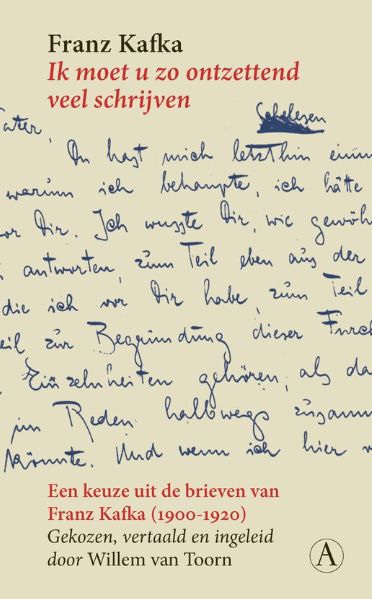 Franz Kafka
Ik moet u zo ontzettend
veel schrijven
Schelesen
ater,
Du hast mich letzthin einm
warum ich behaupte, ich hätte
vor Dir. Ich wusste Dir, wie gewöh
antworten, zum Teil eben aus der
die ich vor Dir habe, zum Teil
eil zur Begründung dieser Furch
Einzelnheiten gehören, als da
im Reden halbwegs zusamm
könnte. Und wenn ich hier v
Een keuze uit de brieven van
Franz Kafka (1900-1920)
Gekozen, vertaald en ingeleid
door Willem van Toorn
A